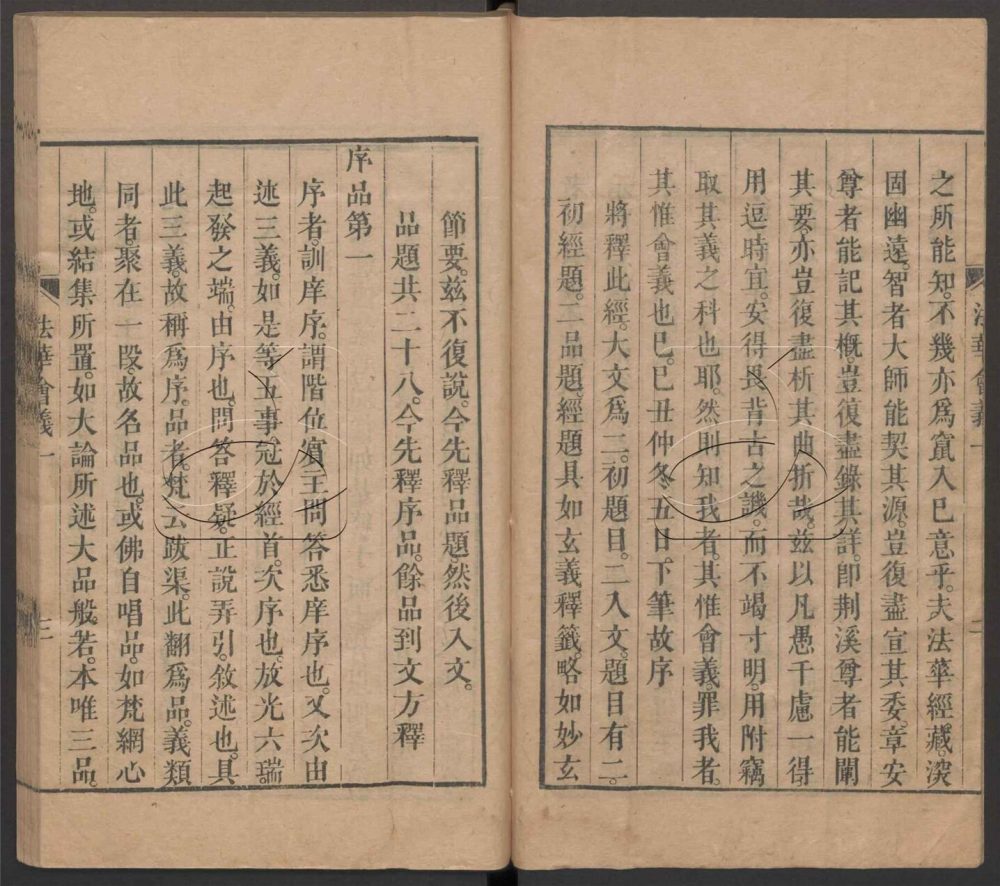 之所能知不幾亦爲竄入已意乎夫法華經藏深
固幽遠智者大師能契其源豈復盡宣其委章安
尊者能記其概豈復盡錄其詳卽荆溪尊者能闡
其要亦豈復盡析其曲折哉茲以凡愚千慮一得
用逗時宜安得畏背古之譏而不竭寸明用附竊
取其義之科也耶然則知我者其惟會義罪我者
其惟會義也已已丑仲冬五日下筆故序
將釋此經大文爲二初題目二入文題目有二
初經題二品題經題具如玄義釋籤略如妙玄
法華會義一
二
節要茲不復說今先釋品題然後入文
品題共二十八今先釋序品餘品到文方釋
序品第一
序者訓庠序謂階位賓主問答悉庠序也又次由
述三義如是等五事冠於經首次序也放光六瑞
起發之端由序也問答釋疑正說弄引敘述也具
此三義故稱爲序品者梵云跋渠此翻爲品義類
同者聚在一段故名品也或佛自唱品如梵網心
地或結集所置如大論所述大品般若本唯三品
法華會義一
三